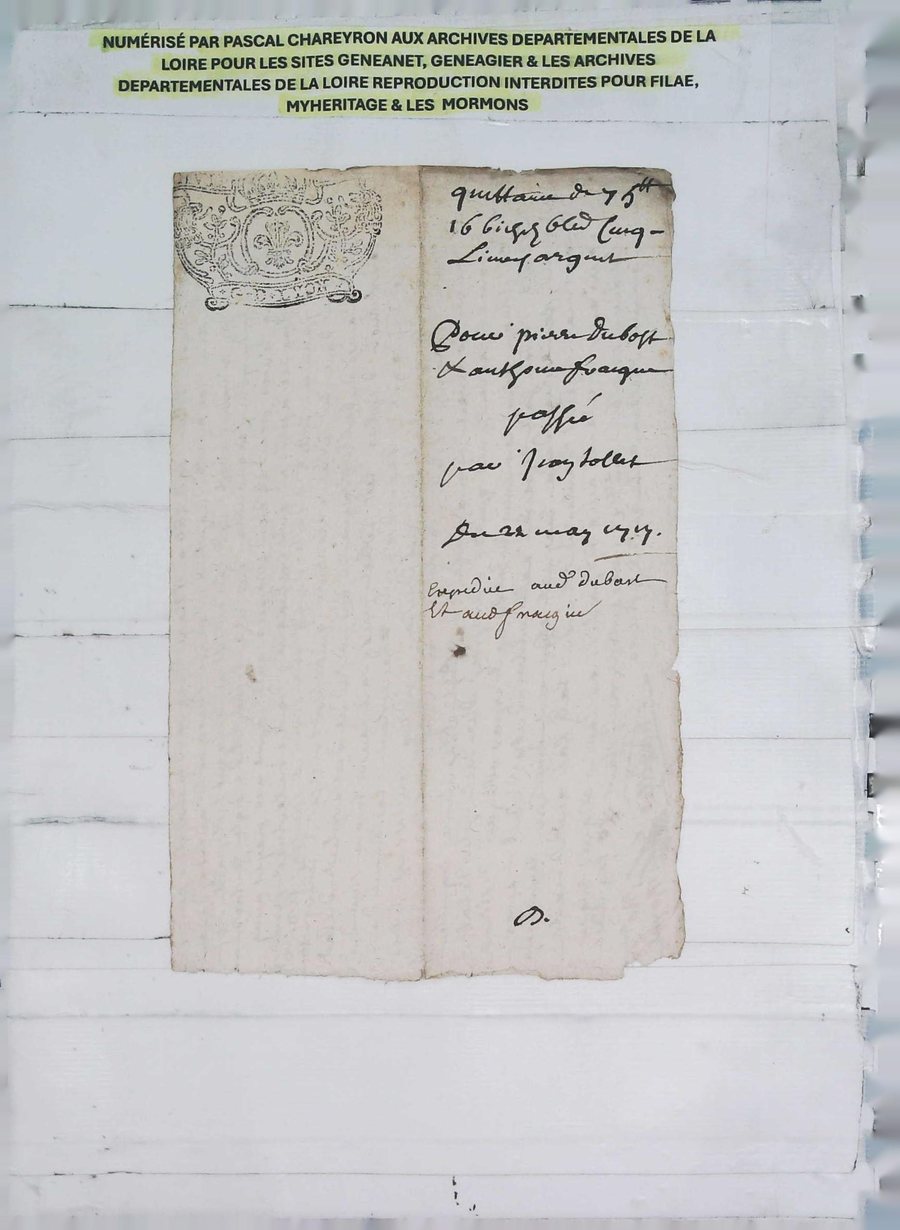 NUMÉRISÉ PAR PASCAL CHAREYRON AUX ARCHIVES DEPARTEMENTALES DE LA
LOIRE POUR LES SITES GENEANET, GENEAGIER & LES ARCHIVES
DEPARTEMENTALES DE LA LOIRE REPRODUCTION INTERDITES POUR FILAE,
MYHERITAGE & LES MORMONS
quittance de 75tt
16 bichez bled cinq
Livres argent
Pour pierre dubost
& anthoine fraigne
passé
par
Du 22 may 1717.
Expediée aud dubost
Et aud fraigne